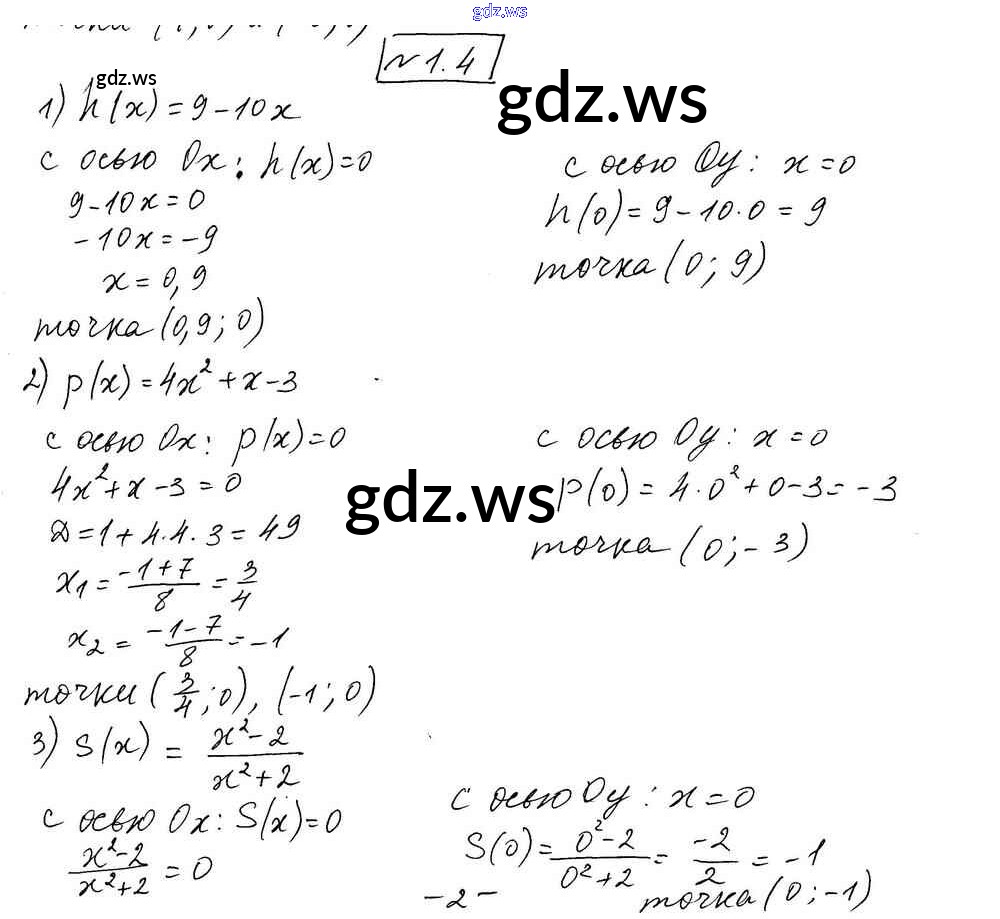 gdz.ws
№1.4
gdz.ws
gdz.ws
1) h(x) = 9 - 10x
с осью Ox: h(x) = 0
9 - 10x = 0
-10x = -9
x = 0,9
точка (0,9; 0)
с осью Oy: x = 0
h(0) = 9 - 10·0 = 9
точка (0; 9)
2) p(x) = 4x² + x - 3
с осью Ox: p(x) = 0
4x² + x - 3 = 0
D = 1 + 4·4·3 = 49
x₁ = (-1+7)/8 = 3/4
x₂ = (-1-7)/8 = -1
точки (3/4; 0), (-1; 0)
с осью Oy: x = 0
p(0) = 4·0² + 0 - 3 = -3
точка (0; -3)
gdz.ws
3) S(x) = (x²-2)/(x²+2)
с осью Ox: S(x) = 0
(x²-2)/(x²+2) = 0
с осью Oy: x = 0
S(0) = (0²-2)/(0²+2) = -2/2 = -1
точка (0; -1)
-2-